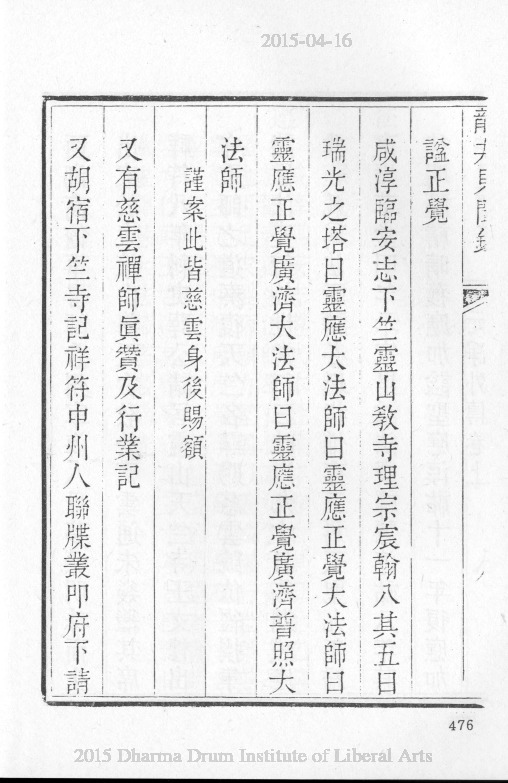 2015-04-16
龍井見聞錄
謚正覺
咸淳臨安志下竺靈山教寺理宗宸翰八其五曰
瑞光之塔曰靈應大法師曰靈應正覺大法師曰
靈應正覺廣濟大法師曰靈應正覺廣濟普照大
法師
謹案此皆慈雲身後賜額
又有慈雲禪師眞贊及行業記
又胡宿下竺寺記祥符中州人聯牒叢叩府下請
476
2015 Dharma Drum Institute of Liberal Arts